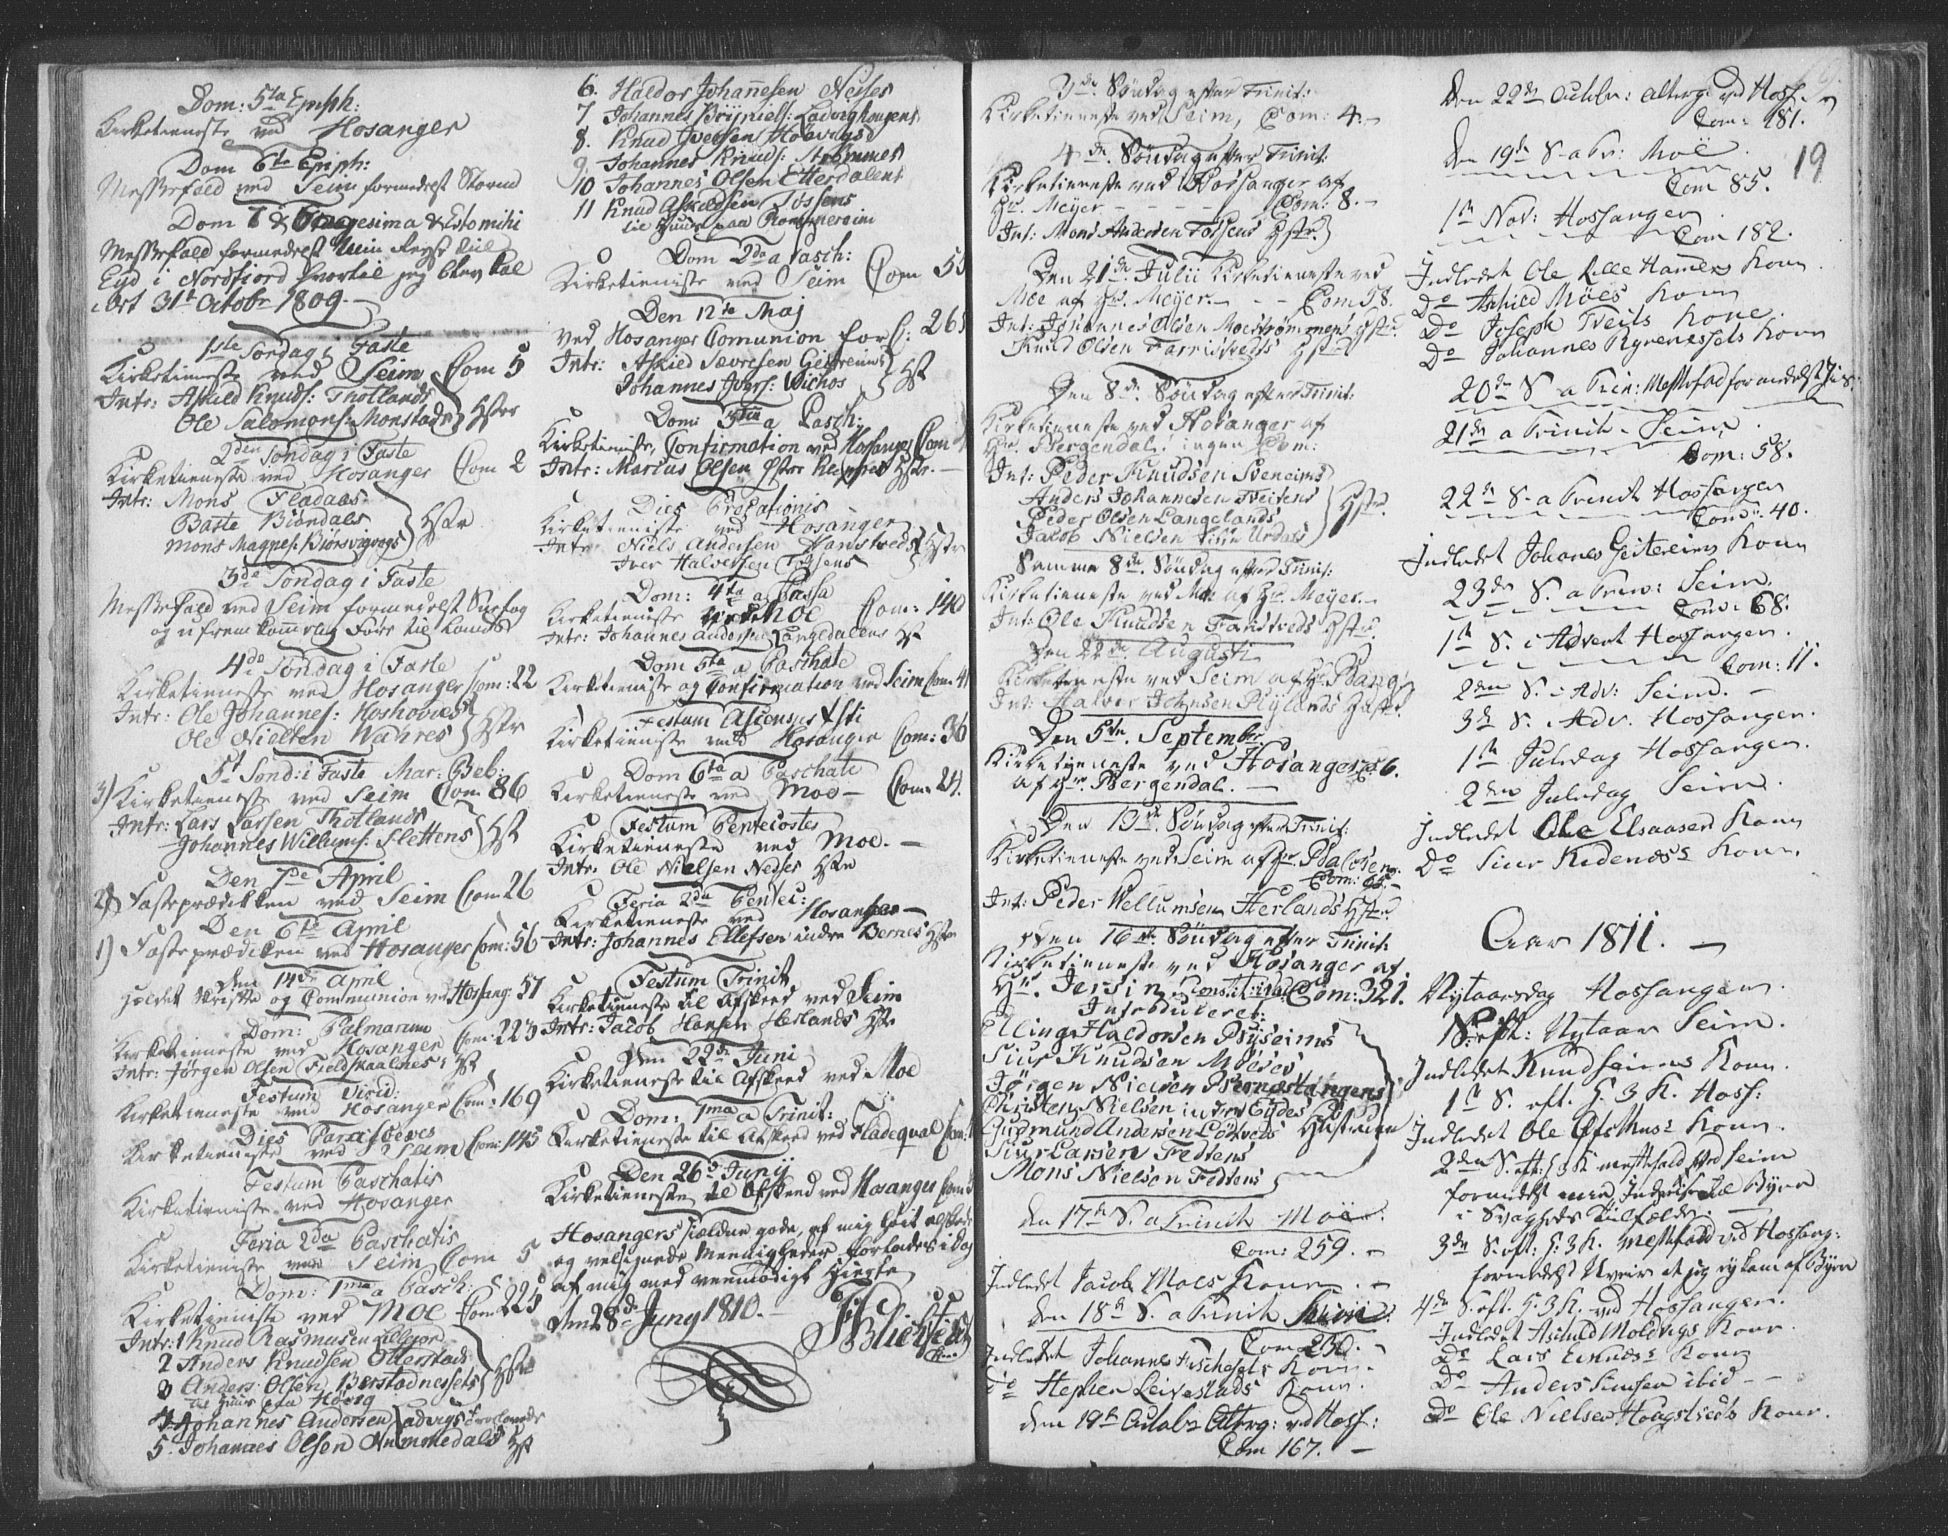 Dom: 5ta Epiph:
Kirketieneste ved Hosanger
Dom 6te Epiph:
Messefald ved Seim formedelst Storm
Messefald formedelst min Reyse til
Eyd i Nordfjord hvortil jeg blev kal
-det 31t Octobr 1809.
1ste Søndag i Faste
Kirketieneste ved Seim Com 5
Intr: Askild Knuds: Thotlands
Ole Salomons: Monstads Hstr
2den Søndag i Faste
Kirketieneste ved Hosanger Com 2
Intr: Mons Fladaas
Baste Biøndals
Mons Magnes: Hstr
3de Søndag i Faste
Messefald ved Seim formedelst
og ufremkommelig Føre til Lands
4de Søndag i Faste
Kirketieneste ved Hosanger Com: 22
Intr: Ole Johannes:
Ole Nielsen Hstr
5t Sønd: i Faste Mar: Beb:
3) Kirketieneste ved Seim Com 86
Intr: Lars Larsen Thotlands
Johannes Willums: Slettens Hst
Den 7de April
2) Fasteprædikken ved Seim Com 26
Den 6te April
1) Fasteprædiken ved Hosanger Com: 56
Den 14de April
holdet Skrifte og Communion ved Hosang: 57
Dom: Palmarum
Kirketieneste ved Hosanger Com: 223
Intr: Jørgen Olsen Fieldskaalnes Hst
Festum Virid:
Kirketieneste ved Hosanger Com: 169
Dies Parasceves
Kirketieneste ved Seim Com: 145
Festum Paschatis
Kirketieneste ved Hosanger
Feria 2da Paschatis
Kirketieneste ved Seim Com 5
Dom: 1ma a Pasch:
Kirketieneste ved Moe Com 225
Intr: 1 Knud Rasmusen
2 Anders Knudsen Otterstad
3 Anders Olsen
4 Johannes Andersen
5. Johannes Olsen Nummedals Hst
6. Haldor Johannesen Neses
7 Johannes
8. Knud Iversen
9. Johannes Knuds: Strømmes
10 Johannes Olsen Etterdalens
11 Knud Askildsen Tossens
til Huus paa
Dom 2da a Pasch:
Kirketieneste ved Seim Com 55
Den 12te Maj
ved Hosanger Comunion fors: 265
Intr: Askild
Johannes Hst
Dom: 3tia a Pasch:
Kirketieneste, Confirmation ved Hosanger Com
Intr: Marcus Olsen Hstr.
Dies Precationis
Kirketieneste ved Hosanger
Intr: Niels Andersen
Iver Halvorsen Tossens Hstr
Dom: 4ta a Passa
Kirketieneste ved Moe Com: 140
Intr: Johannes Andersen Langedalens Hst
Dom 5ta a Paschate
Kirketieneste og Confirmation ved Seim Com: 41
Festum Ascensus Xsti
Kirketieneste ved Hosanger Com: 36
Dom 6ta a Paschate
Kirketieneste ved Moe Com: 24.
Festum Pentecostes
Kirketieneste ved Moe.
Intr: Ole Nielsen Neses Hstr
Feria 2da Pentec:
Kirketieneste ved Hosanger
Intr: Johannes Ellefsen indre Bernes Hstr
Festum Trinit
Kirketieneste til Afskeed ved Seim
Intr: Jacob Hansen Herlands Hstr
Den 22de Juni
Kirketieneste til Afskeed ved Moe
Dom: 1ma a Trinit:
Kirketieneste til Afskeed ved Fladequal Com:
Den 26d Junij
Kirketieneste til Afskeed ved Hosanger Com
Hosangers sieldne gode, af mig høit elskede
og velsignede Meenigheder forlades i Dag
af mig med veemodigt Hierte
den 28de Juny 1810.
3de Søndag efter Trinit:
Kirketieneste ved Seim, Com: 4.
4de Søndag efter Trinit:
Kirketieneste ved Hossanger af
Hr. Meyer Com: 8.
Int: Mons Andersen Tossens Hstr.
Den 21de Julii Kirketieneste ved
Moe af Hr. Meyer. Com 58.
Int: Johannes Olsen Moestrømmens Hstr.
Knud Olsen Farristveds Hstr
Den 8de Søndag efter Trinit:
Kirketieneste ved Hosanger af
Hr. Bergendal. ingen Com:
Int: Peder Knudsen Sveneims
Anders Johannesen Tveitens
Peder Olsen Langelands
Jacob Nielsen Urdals Hstr.
Samme 8de Søndag efter Trinit:
Kirketieneste ved Moe af Hr. Meyer.
Int: Ole Knudsen Fanstveds Hstr.
Den 22de Augusti
Kirketieneste ved Seim af Hr Bang
Int: Halvor Johnsen Rylands Hstr.
Den 5te September
Kirketieneste ved Hosanger C. 6.
af Hr. Bergendal.
Den 13de Søndag efter Trinit:
Kirketieneste ved Seim af Hr Balchen
Int: Peder Wellumsen Herlands Hstr.
Den 16de Søndag efter Trinit:
Kirketieneste ved Hosanger af
Hr. Jersin Com: 321.
Introduceret:
Elling Haldorsen Ryseims
Siur Knudsen Møeses
Jørgen Nielsen Bernestangens
Christen Nielsen indre Eydes
Gudmund Andersen Hustruer
Siur Larsen Fedtens
Mons Nielsen Fedtens
den 17de S. a Trinit Moe.
Com: 259.
Indledet Jacob Moes Kone
den 18d S. a Trinit Seim.
Com 250.
Indledet Johannes Kone
do Stephen Leivestads Kone.
den 19t Octobr Alterg: ved Hoss:
Com 167.
Den 22de Octobr: alterg: ved Hoss.
Com: 181.
19
den 19de S. a Tr: Moe
Com 85.
1te Nov: Hossanger
Com 182.
Indledet Ole Lille Hamers Kone
Do Askild Møes Kone
Do Joseph Tveits Kone.
Do Johannes Kone
20de S. a Trin: Messefald formedelst
21de a Trinit. Seim.
Com: 58.
22de S. a Trinit Hossanger
Com: 40.
Indledet Johanes Geitereims Kone
23de S. a Trin: Seim.
Com: 68.
1te S. i Advent Hossanger.
Com: 11.
2den S. i Adv: Seim.
3de S. Adv. Hossanger.
1te Juledag Hossanger.
2den Juledag Seim.
Indledet Ole Elsaasen Kone
Do Siur Kidenæss Kone.
Aar 1811.
Nytaarsdag Hossanger.
1 S. eft: Nytaar Seim.
Indledet Knud Seims Kone.
1te S. eft. H. 3 K. Hoss:
Indledet Ole Kone.
2den S. eft: H. 3 K messefald ved Seim
formedelst min Indreise til Byen
i Svagheds tilfælde.
3de S. eft: H. 3 K. Messefald ved Hossang:
formedelst Uveir at jeg ey kom af Byen
4de S. eft. H. 3 K. ved Hossanger.
Indledet Aschild Moldvigs Kone.
Do Lars Eknæss Kone
Do Anders Simsen ibid
Do Ole Nielsen Hougstveds Kone.